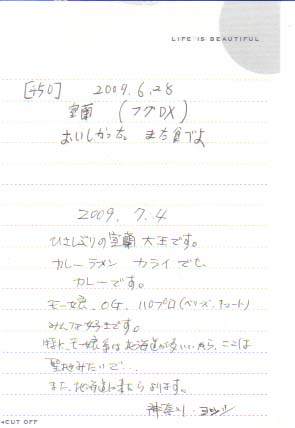 LIFE IS BEAUTIFUL
[450] 2009.6.28
室蘭 (フグDX)
おいしかった。また食べよ
2009. 7.4
ひさしぶりの室蘭 大王です。
カレーラメン カライ でも、
カレーです。
モー娘、OG、ハロプロ(ベリーズ、キュート)
みんな好きです。
特にモー娘系は北海道が多いから、ここは
聖地みたいで…
また、北海道に来たらよります。
神奈川
CUT OFF